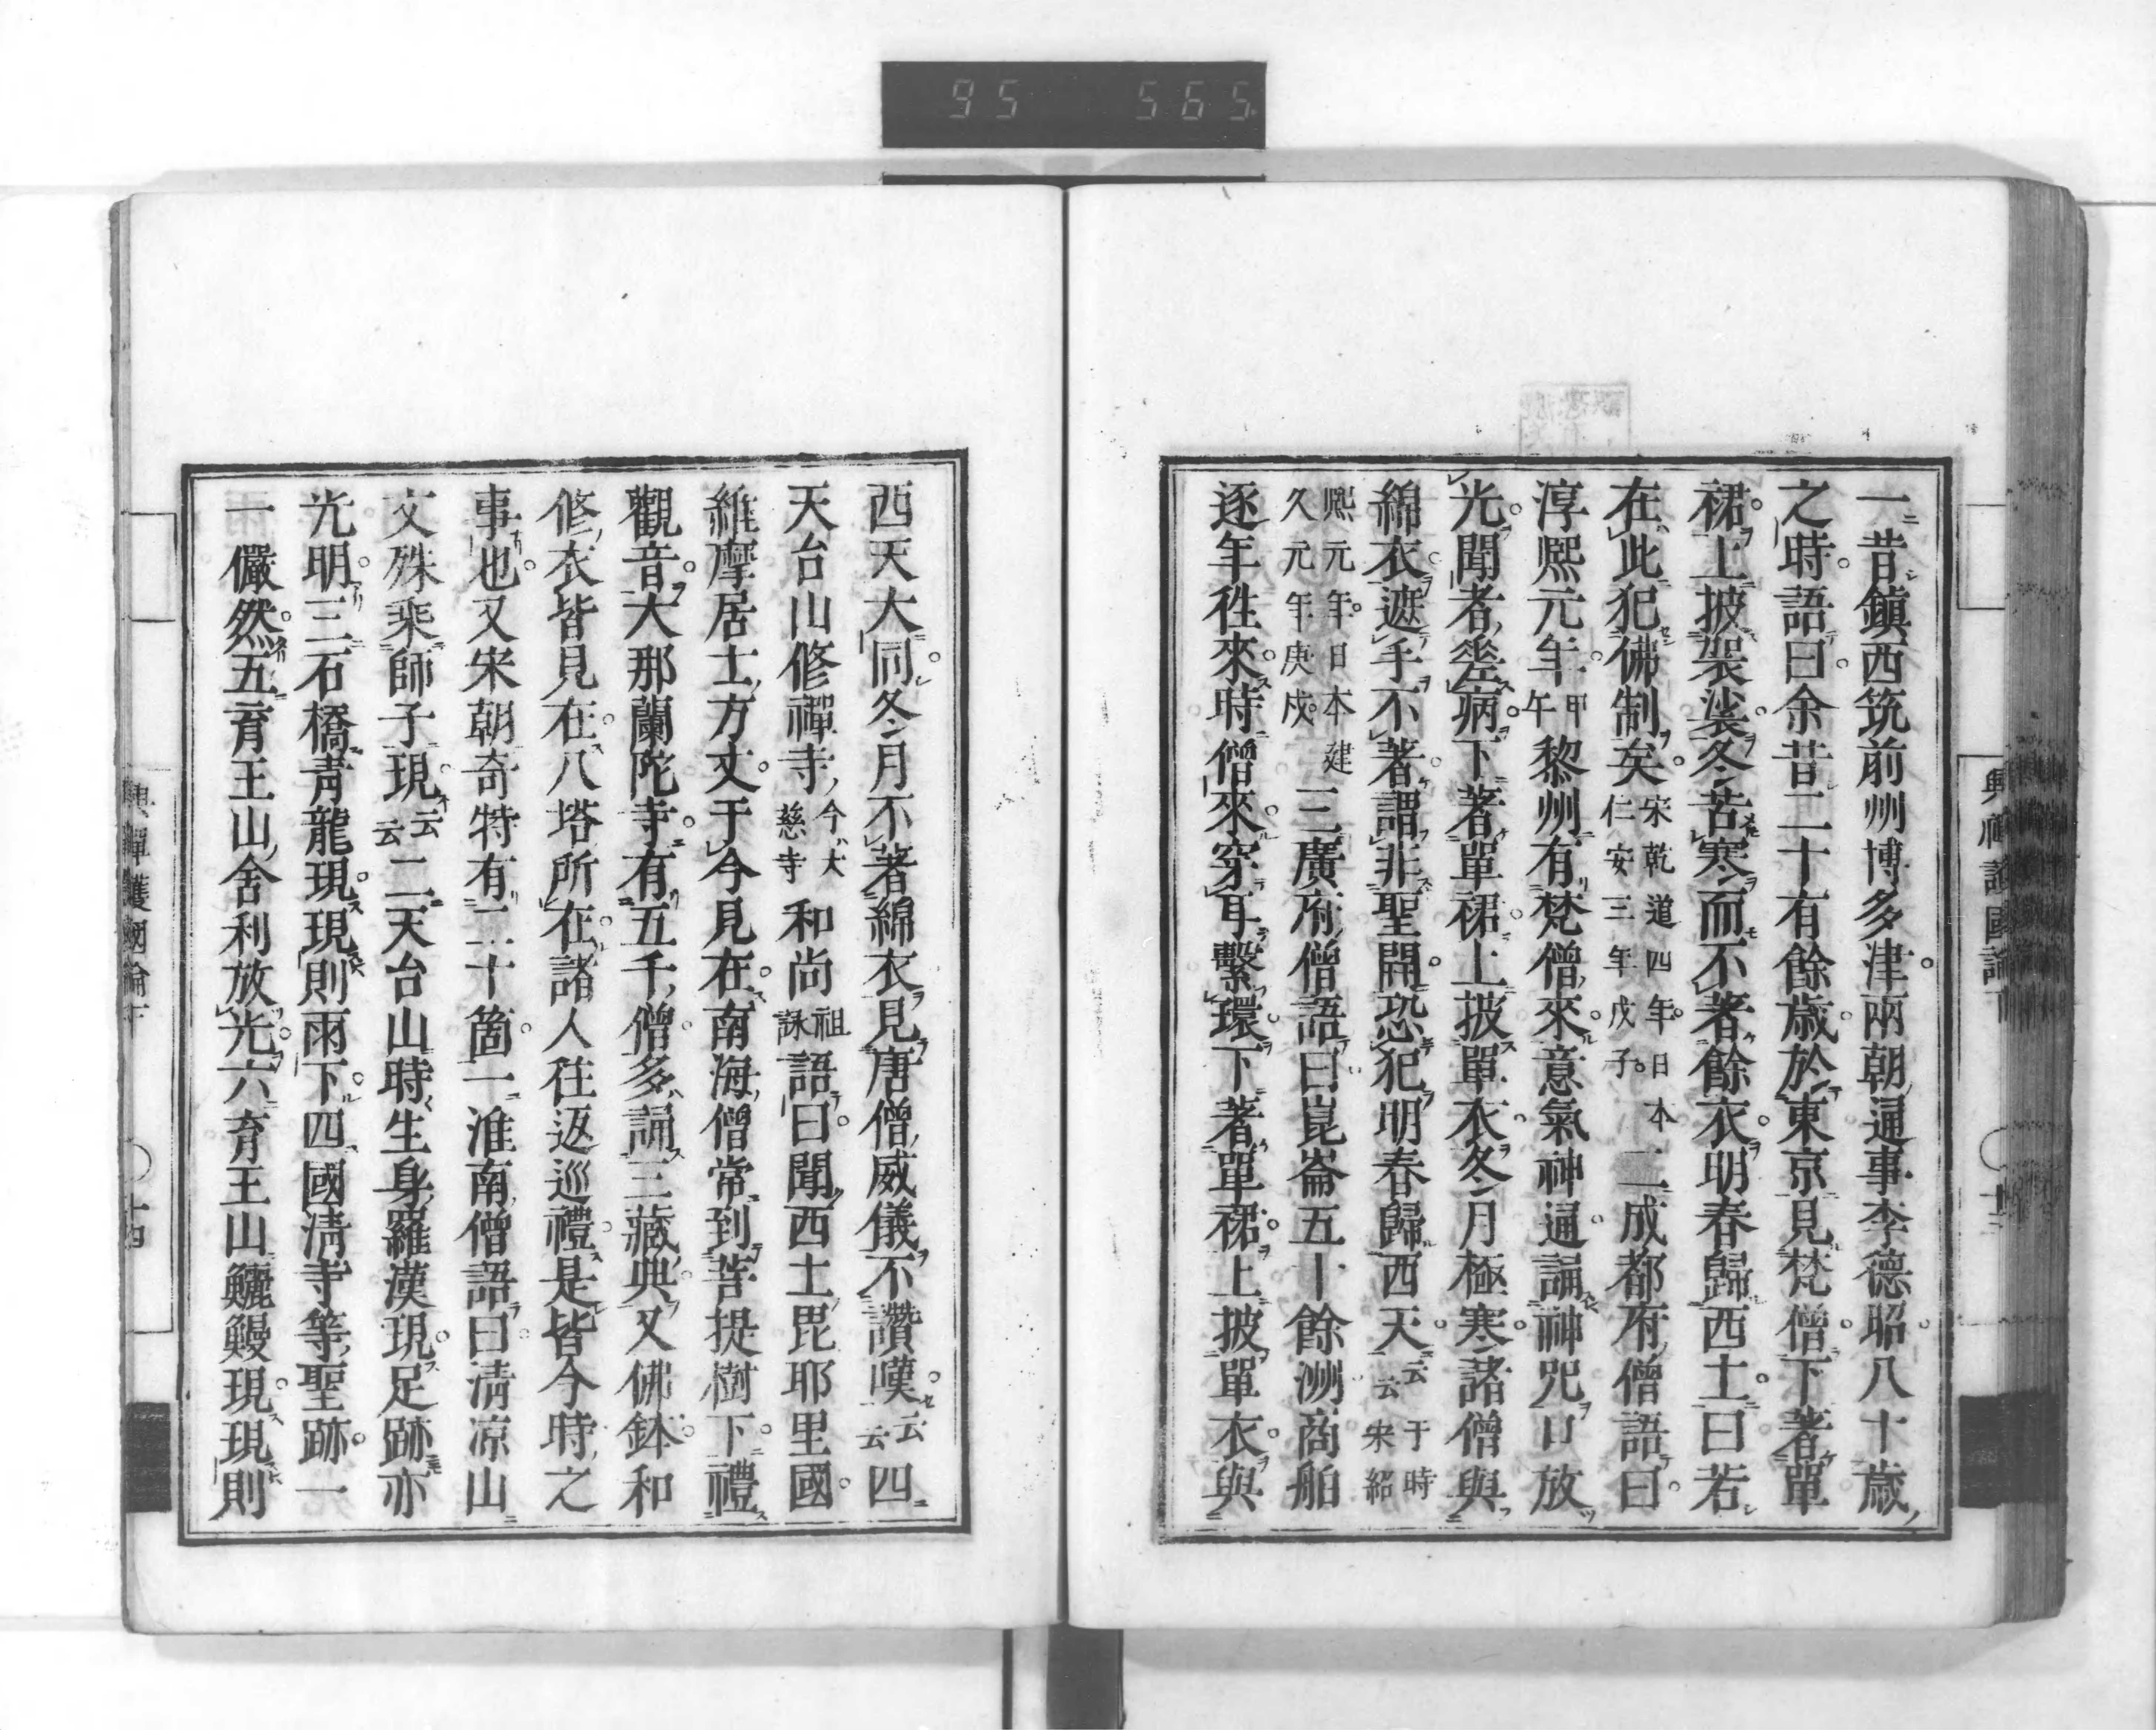 95 565
興禪護國論下 十三
一昔鎭西筑前州博多津兩朝通事李德昭八十歲
之時語曰余昔二十有餘歲於東京見梵僧下著單
裙上披袈裟冬苦寒而不著餘衣明春歸西土曰若
在此犯佛制矣宋乾道四年日本仁安三年戊子二成都府僧語曰
淳熙元年甲午黎州有梵僧來意氣神通誦神咒口放
光聞者㽵病下著單裙上披單衣冬月極寒諸僧與
綿衣遮手不著謂非聖開恐犯明春歸西天云云于時宋紹
熙元年日本建久元年庚戌三廣府僧語曰崑崙五十餘洲商舶
逐年往來時僧來穿耳繫環下著單裙上披單衣與
西天大同冬月不著綿衣見唐僧威儀不讚嘆云云四
天台山修禪寺今大慈寺和尚祖詠語曰聞西土毘耶里國
維摩居士方丈于今見在南海僧常到菩提樹下禮
觀音大那蘭陀寺有五千僧多誦三藏典又佛鉢和
修衣皆見在八塔所在諸人往返巡禮是皆今時之
事也又宋朝奇特有二十箇一淮南僧語曰淸凉山
文殊乘師子現云云二天台山時生身羅漢現足跡亦
光明三石橋靑龍現現則雨下四國淸寺等聖跡一
一儼然五育王山舍利放光六育王山鱺鰻現現則
興禪護國論下 十四